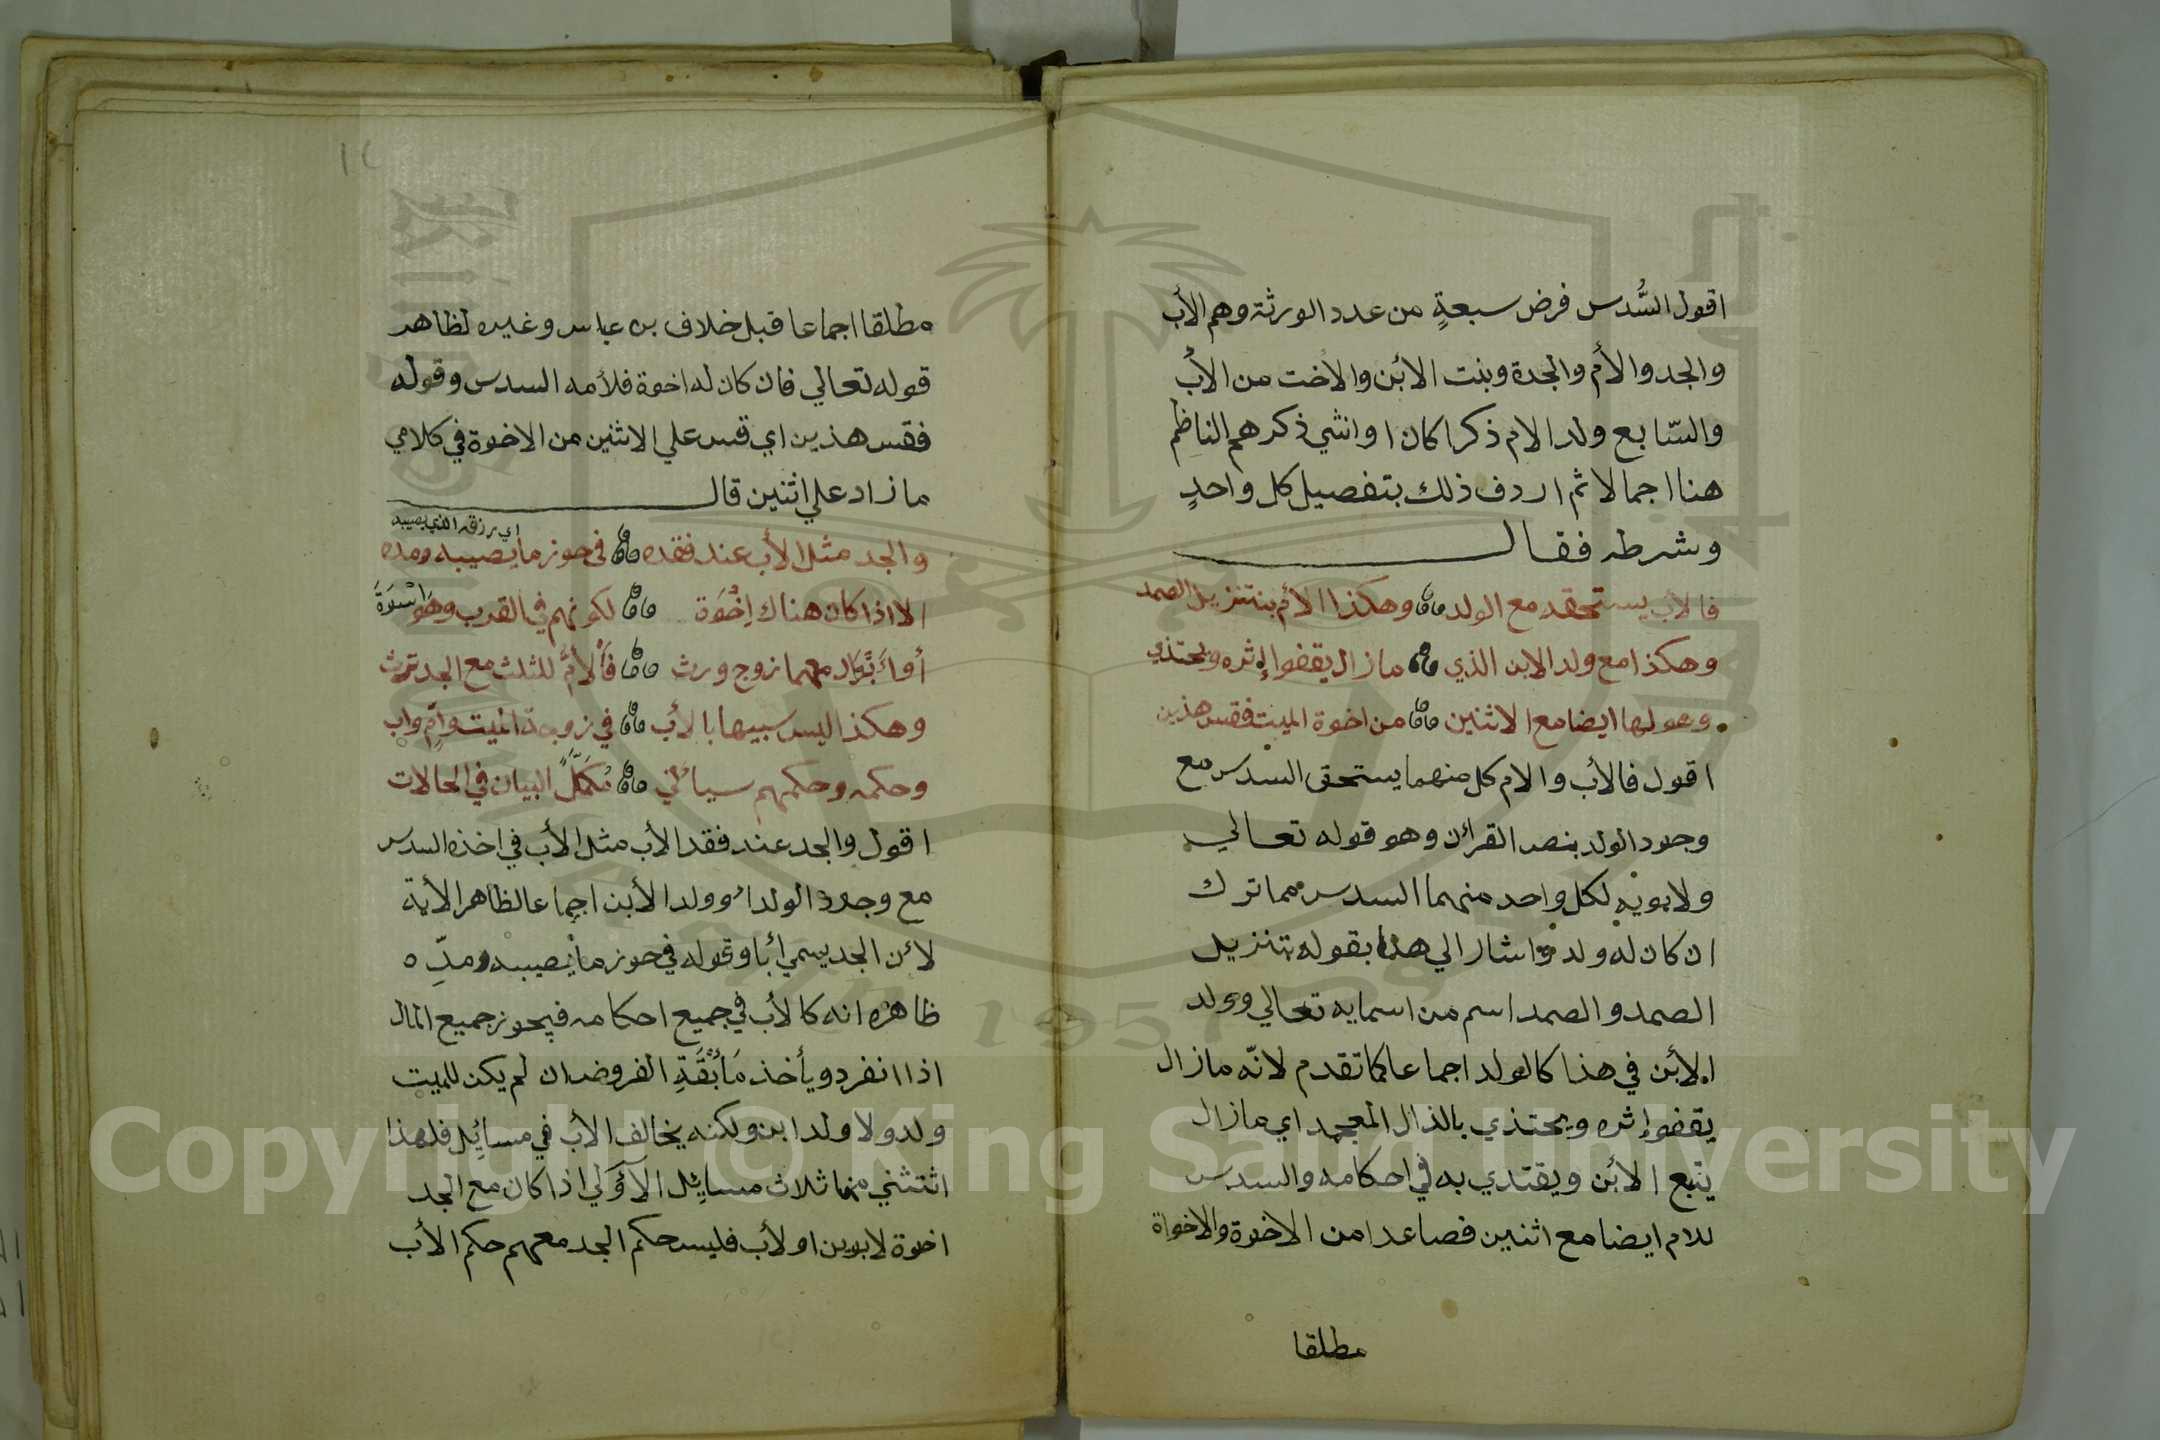 اقول السُّدس فرض سبعةٍ من عدد الورثة وهم الأب
والجد والأم والجدة وبنت الابن والاخت من الأب
والسّابع ولد الام ذكرا كان او انثي ذكرهم الناظم
هنا اجمالا ثم اردف ذلك بتفصيل كل واحدٍ
وشرطه فقال
فالاب يستحقه مع الولد وهكذا الأم بتنزيل الصمد
وهكذا مع ولد الابن الذي مازال يقفوا إثره ويحتذي
وهو لها ايضا مع الاثنين من اخوة الميت فقس هذين
اقول فالأب والام كل منهما يستحق السدس مع
وجود الولد بنص القرائن وهو قوله تعالي
ولابويه لكل واحد منهما السدس مما ترك
ان كان له ولد واشار الي هذا بقوله تنزيل
الصمد والصمد اسم من اسمايه تعالي وولد
الأبن في هذا كالولد اجماعا كما تقدم لانّه مازال
يقفوا إثره ويحتذي بالذال المعجمه اي مازال
يتبع الابن ويقتدي به في احكامه والسدس
للام ايضا مع اثنين فصاعدا من الاخوة والاخواة
مطلقا
١٢
مطلقا اجماعا قبل خلاف بن عباس وغيره لظاهر
قوله تعالي فان كان له اخوة فلأمه السدس وقوله
فقس هذين اي قس علي الاثنين من الاخوة في كلامي
ما زاد علي اثنين قال
اي رزقه الذي يصيبه
والجد مثل الأب عند فقده في حوز ما يصيبه ومده
الا اذا كان هناك إخْوَة لكونهم في القرب وهو اسْوَة
أو أبوان معهما زوج ورث فالأم للثلث مع الجد ترث
وهكذا ليس شبيها بالأب في زوجة الميت وأم واب
وحكمه وحكمهم سيأتي مكمَّل البيان في الحالات
اقول والجد عند فقد الأب مثل الأب في اخذه السدس
مع وجود الولد او ولد الأبن اجماعا لظاهر الأية
لائن الجد يسمي أبا وقوله في حوز ما يصيبه ومدِّه
ظاهره انه كالأب في جميع احكامه فيحوز جميع المال
اذا انفرد ويأخذ مَا بْقَّةِ الفروض ان لم يكن للميت
ولد ولا ولد ابن ولكنه يخالف الأب في مسائل فلهذا
اثتثني منها ثلاث مسائل الأولي اذا كان مع الجد
اخوة لابوين او لأب فليس حكم الجد معهم حكم الأب
Copyright © King Saud University
1957